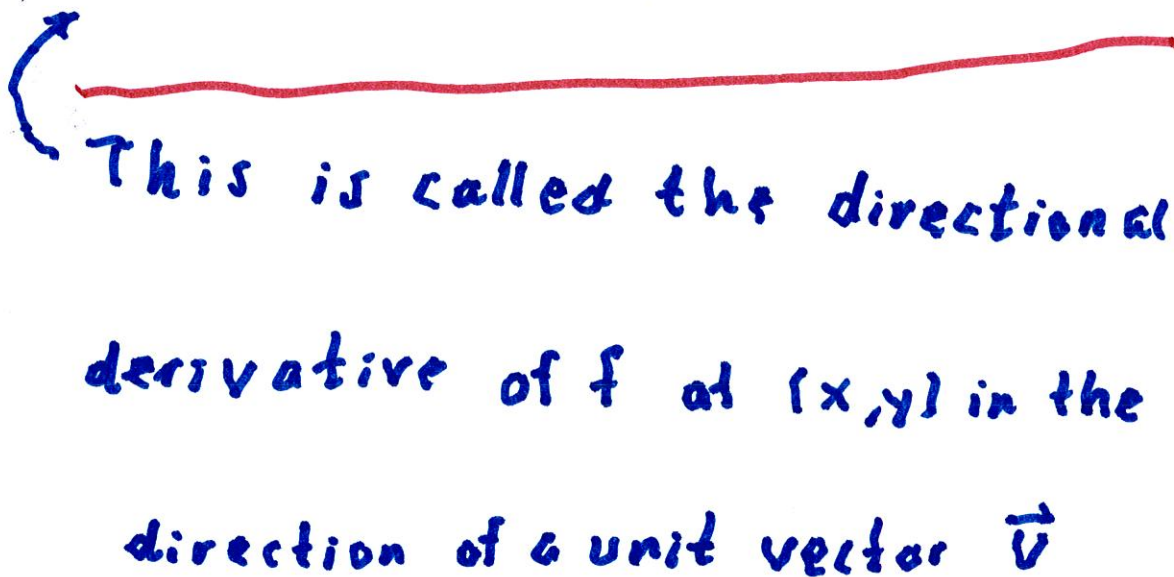 This is called the directional
derivative of f at (x,y) in the
direction of a unit vector \vec{v}